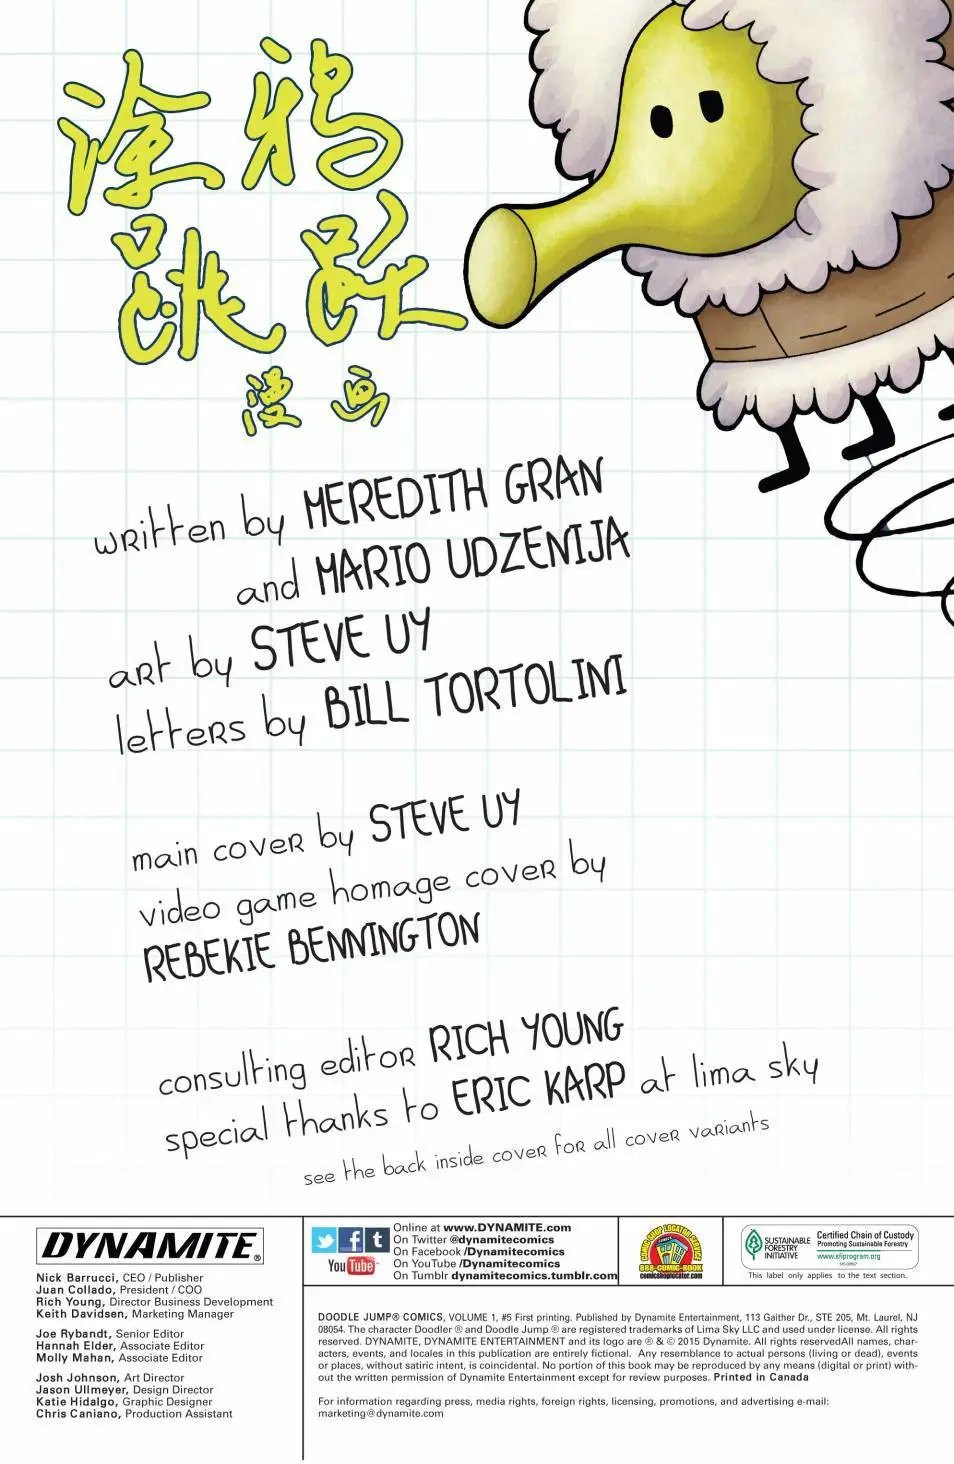 涂鸦
跳跃
漫画
written by MEREDITH GRAN
and MARIO UDZENIJA
art by STEVE UY
letters by BILL TORTOLINI
main cover by STEVE UY
video game homage cover by
REBEKIE BENNINGTON
consulting editor RICH YOUNG
special thanks to ERIC KARP at lima sky
see the back inside cover for all cover variants
DYNAMITE®
Nick Barrucci, CEO / Publisher
Juan Collado, President / COO
Rich Young, Director Business Development
Keith Davidsen, Marketing Manager
Joe Rybandt, Senior Editor
Hannah Elder, Associate Editor
Molly Mahan, Associate Editor
Josh Johnson, Art Director
Jason Ullmeyer, Design Director
Katie Hidalgo, Graphic Designer
Chris Caniano, Production Assistant
YouTube
Online at www.DYNAMITE.com
On Twitter @dynamitecomics
On Facebook /Dynamitecomics
On YouTube /Dynamitecomics
On Tumblr dynamitecomics.tumblr.com
COMIC SHOP LOCATOR SERVICE
COMICS
888-COMIC-BOOK
comicshoplocator.com
SUSTAINABLE
FORESTRY
INITIATIVE
Certified Chain of Custody
Promoting Sustainable Forestry
www.sfiprogram.org
This label only applies to the text section.
DOODLE JUMP® COMICS, VOLUME 1, #5 First printing. Published by Dynamite Entertainment, 113 Gaither Dr., STE 205, Mt. Laurel, NJ
08054. The character Doodler ® and Doodle Jump ® are registered trademarks of Lima Sky LLC and used under license. All rights
reserved. DYNAMITE, DYNAMITE ENTERTAINMENT and its logo are ® & © 2015 Dynamite. All rights reservedAll names, char-
acters, events, and locales in this publication are entirely fictional. Any resemblance to actual persons (living or dead), events
or places, without satiric intent, is coincidental. No portion of this book may be reproduced by any means (digital or print) with-
out the written permission of Dynamite Entertainment except for review purposes. Printed in Canada
For information regarding press, media rights, foreign rights, licensing, promotions, and advertising e-mail:
marketing@dynamite.com